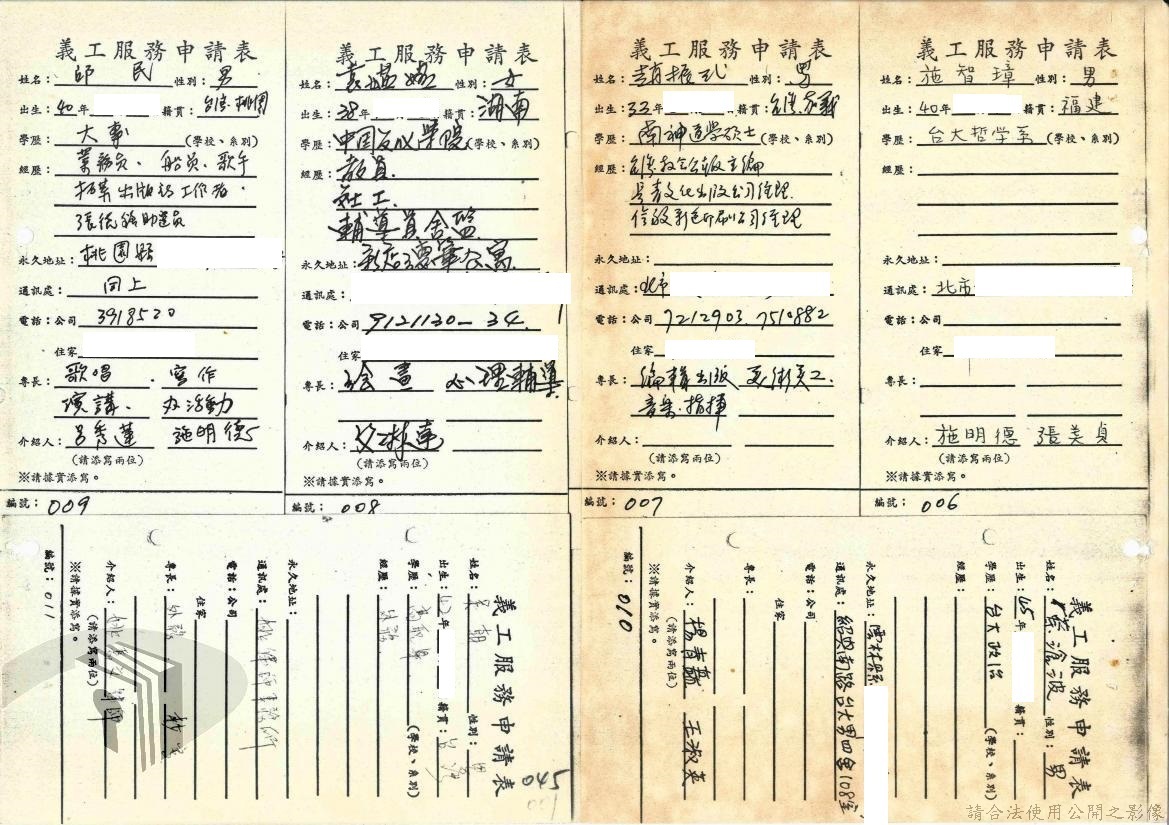 義工服務申請表
姓名：邱 民 性別：男
出生：40年 籍貫：台灣.桃園
學歷：大專 (學校、系別)
經歷：業務員、船員、歌手
出版社工作者.
張德銘助選員
永久地址：桃園縣
通訊處：同上
電話：公司 3918520
住家
專長：歌唱.寫作
演講.办活動
介紹人：呂秀蓮 施明德
(請添寫兩位)
※請據實添寫。
編號：009
義工服務申請表
姓名：袁嬿嬿 性別：女
出生：38年 籍貫：湖南
學歷：(學校、系別)
經歷：教員.
社工.
輔導員舍監
永久地址：
通訊處：
電話：公司 9121130-34.
住家
專長：繪畫 心理輔導
介紹人：
(請添寫兩位)
※請據實添寫。
編號：008
義工服務申請表
姓名：趙振貳 性別：男
出生：33年 籍貫：
學歷：南神道學碩士 (學校、系別)
經歷：台灣教會公報主編
文化出版公司經理
印刷公司經理
永久地址：
通訊處：北市
電話：公司 7212903.7510882
住家
專長：編輯出版 美術美工
音樂.指揮
介紹人：
(請添寫兩位)
※請據實添寫。
編號：007
義工服務申請表
姓名：施智璋 性別：男
出生：40年 籍貫：福建
學歷：台大哲学系 (學校、系別)
經歷：
永久地址：
通訊處：北市
電話：公司
住家
專長：
介紹人：施明德 張美貞
(請添寫兩位)
※請據實添寫。
編號：006
義工服務申請表
姓名：吳朝 性別：男
出生：42年 籍貫：
學歷：高職畢 (學校、系別)
經歷：
永久地址：
通訊處：姚律師事務所
電話：公司
住家
專長：
介紹人：姚嘉文律師
(請添寫兩位)
※請據實添寫。
編號：011
045
001
義工服務申請表
姓名：蔡 波 性別：男
出生：45年 籍貫：
學歷：台大政治 (學校、系別)
經歷：
永久地址：雲林縣
通訊處：紹興南路台大男四舍108室
電話：公司
住家
專長：
介紹人：楊青矗 王淑英
(請添寫兩位)
※請據實添寫。
編號：010
請合法使用公開之影像